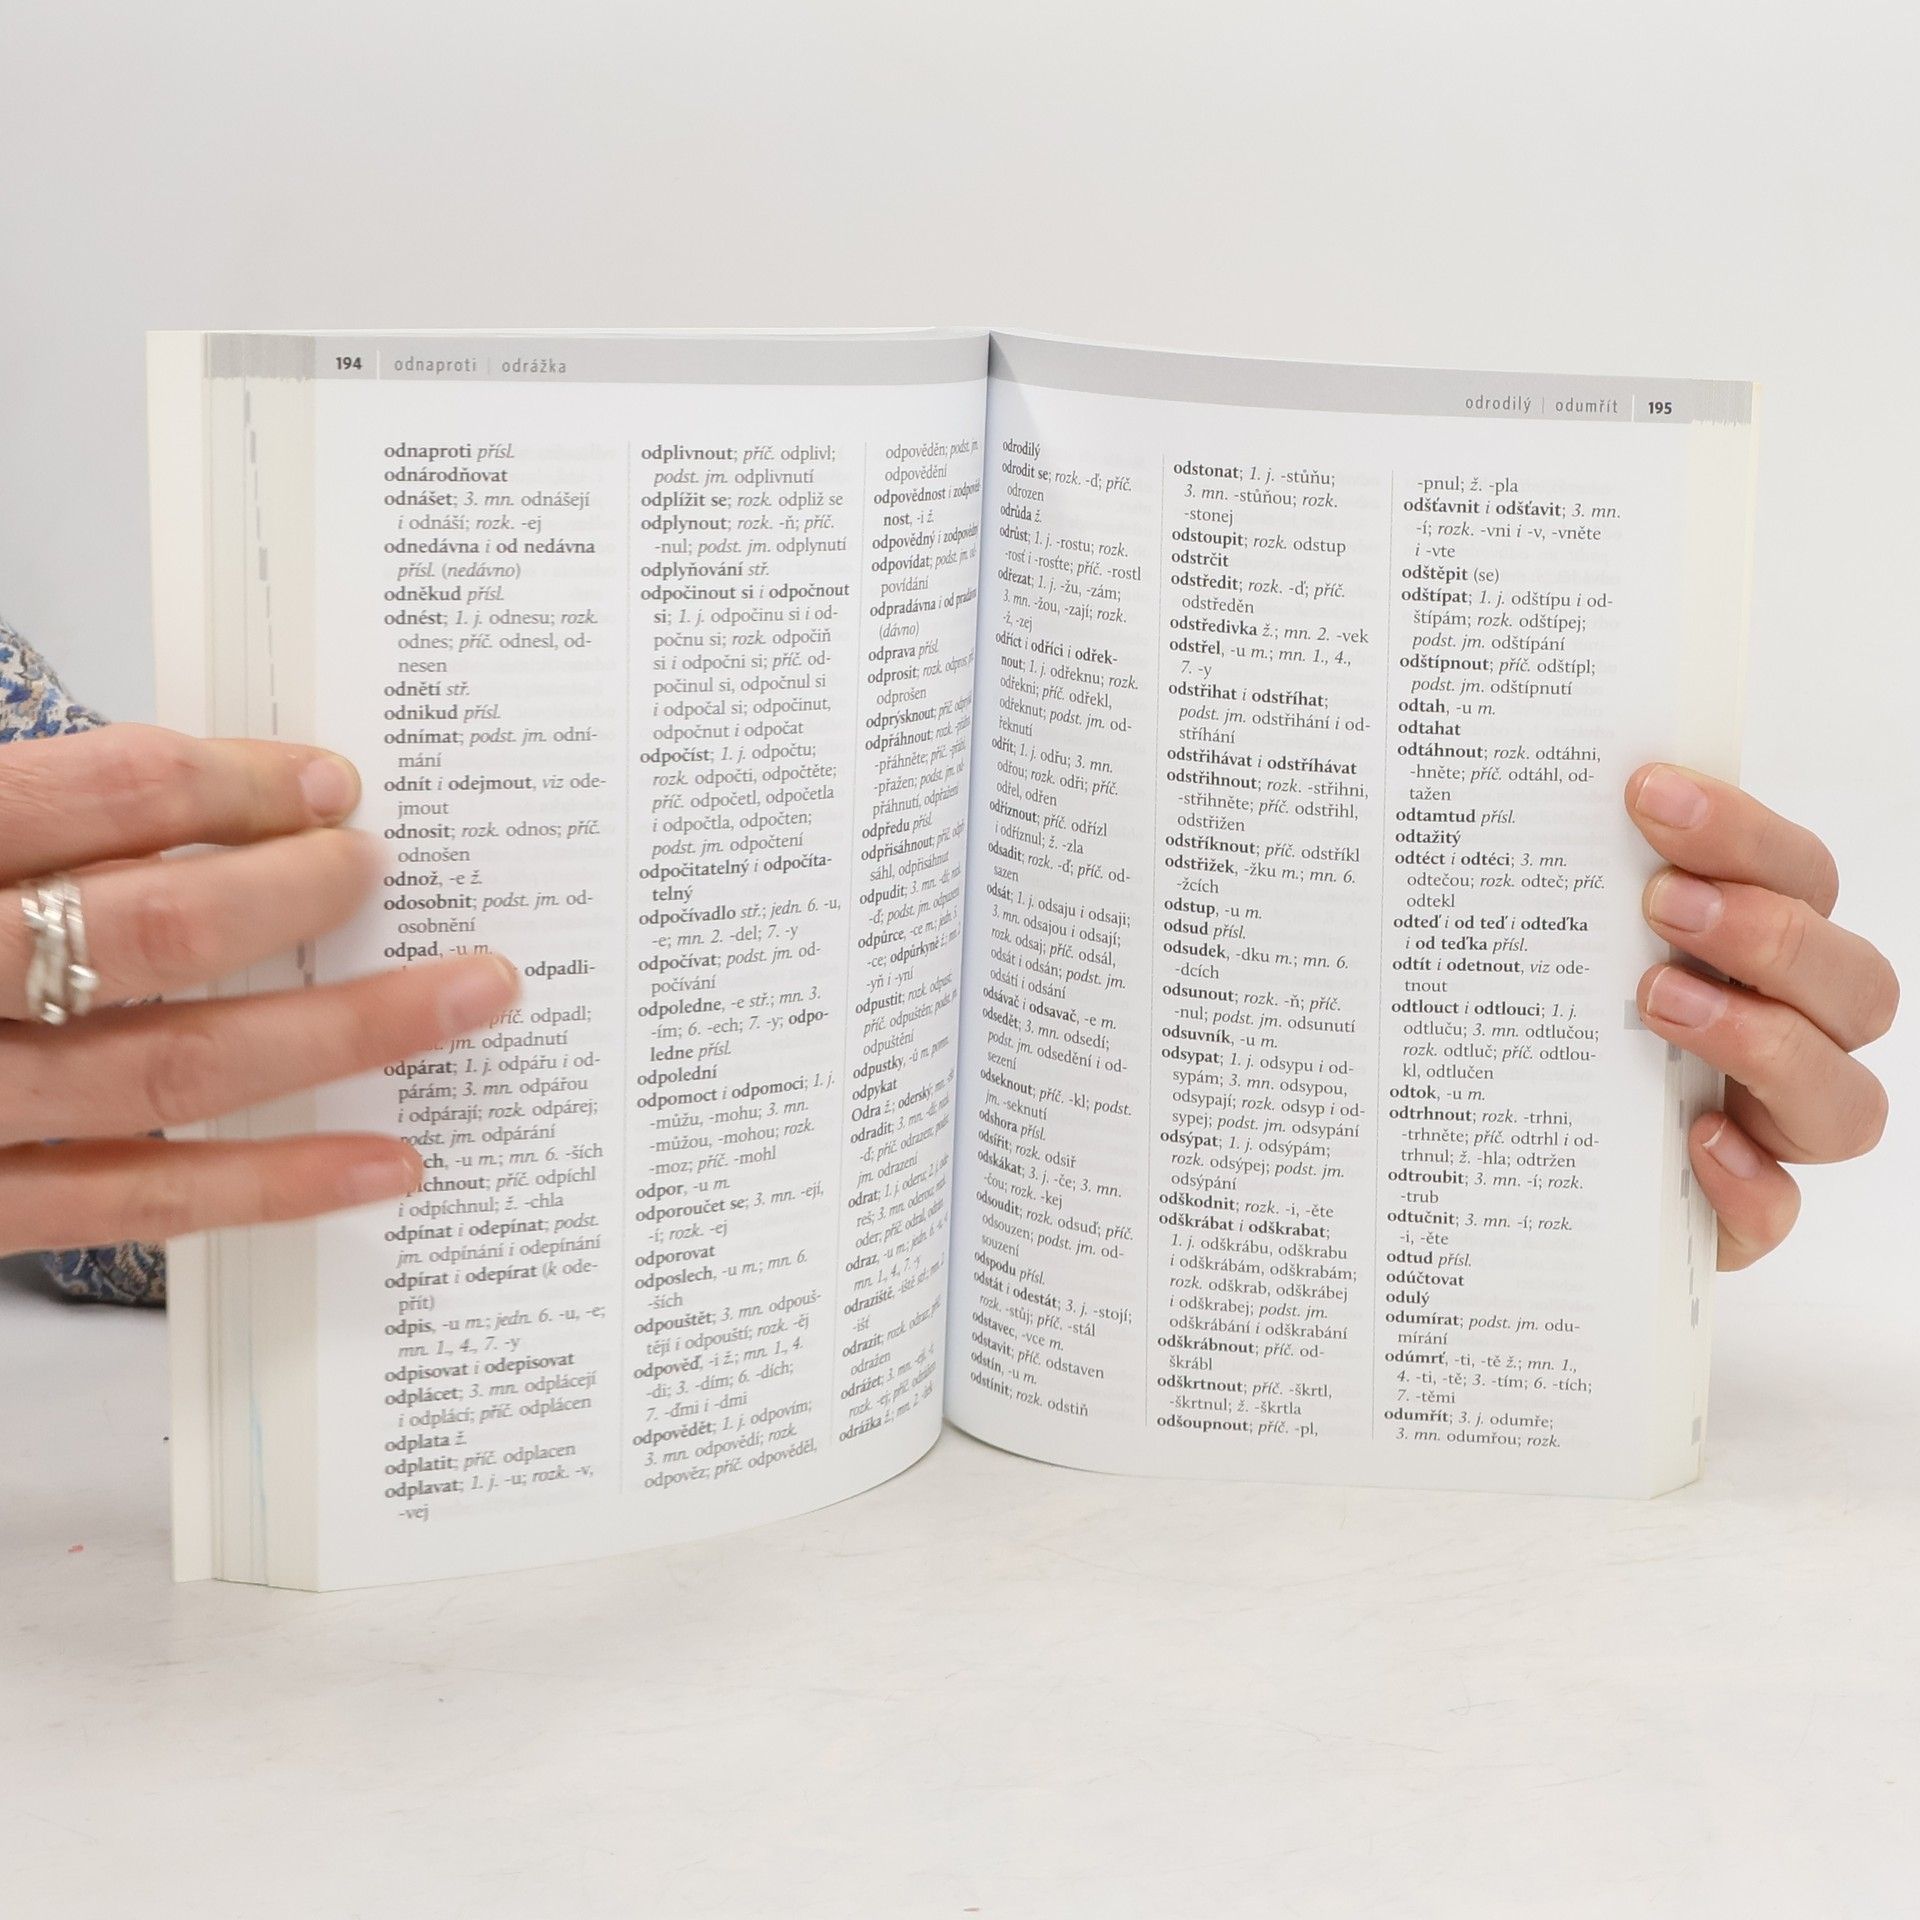 194 | odnaproti | odrážka
odnaproti přísl.
odnárodňovat
odnášet; 3. mn. odnášejí
i odnáší; rozk. -ej
odnedávna i od nedávna
přísl. (nedávno)
odněkud přísl.
odnést; 1. j. odnesu; rozk.
odnes; příč. odnesl, od-
nesen
odnětí stř.
odnikud přísl.
odnímat; podst. jm. odní-
mání
odnít i odejmout, viz ode-
jmout
odnosit; rozk. odnos; příč.
odnošen
odnož, -e ž.
odosobnit; podst. jm. od-
osobnění
odpad, -u m.
odpadli-
příč. odpadl;
jm. odpadnutí
odpárat; 1. j. odpářu i od-
párám; 3. mn. odpářou
i odpárají; rozk. odpárej;
podst. jm. odpárání
-u m.; mn. 6. -ších
příč. odpíchl
i odpíchnul; ž. -chla
odpínat i odepínat; podst.
jm. odpínání i odepínání
odpírat i odepírat (k ode-
přít)
odpis, -u m.; jedn. 6. -u, -e;
mn. 1., 4., 7. -y
odpisovat i odepisovat
odplácet; 3. mn. odplácejí
i odplácí; příč. odplácen
odplata ž.
odplatit; příč. odplacen
odplavat; 1. j. -u; rozk. -v,
-vej
odplivnout; příč. odplivl;
podst. jm. odplivnutí
odplížit se; rozk. odpliž se
odplynout; rozk. -ň; příč.
-nul; podst. jm. odplynutí
odplyňování stř.
odpočinout si i odpočnout
si; 1. j. odpočinu si i od-
počnu si; rozk. odpočiň
si i odpočni si; příč. od-
počinul si, odpočnul si
i odpočal si; odpočinut,
odpočnut i odpočat
odpočíst; 1. j. odpočtu;
rozk. odpočti, odpočtěte;
příč. odpočetl, odpočetla
i odpočtla, odpočten;
podst. jm. odpočtení
odpočitatelný i odpočíta-
telný
odpočívadlo stř.; jedn. 6. -u,
-e; mn. 2. -del; 7. -y
odpočívat; podst. jm. od-
počívání
odpoledne, -e stř.; mn. 3.
-ím; 6. -ech; 7. -y; odpo-
ledne přísl.
odpolední
odpomoct i odpomoci; 1. j.
-můžu, -mohu; 3. mn.
-můžou, -mohou; rozk.
-moz; příč. -mohl
odpor, -u m.
odporoučet se; 3. mn. -ejí,
-í; rozk. -ej
odporovat
odposlech, -u m.; mn. 6.
-ších
odpouštět; 3. mn. odpouš-
tějí i odpouští; rozk. -ěj
odpověď, -i ž.; mn. 1., 4.
-di; 3. -dím; 6. -dích;
7. -ďmi i -dmi
odpovědět; 1. j. odpovím;
3. mn. odpovědí; rozk.
odpověz; příč. odpověděl,
odpověděn; podst. jm.
odpovědění
odpovědnost i zodpověd-
nost, -i ž.
odpovědný i zodpovědný
odpovídat; podst. jm. od-
povídání
odpradávna i od pradávna
(dávno)
odprava přísl.
odprosit; rozk. odpros; příč.
odprošen
odprýsknout; příč.
odpřáhnout; rozk. -přáhni,
-přáhněte; příč. -přáhl,
-přažen; podst. jm. od-
přáhnutí, odpřažení
odpředu přísl.
odpřisáhnout; příč. odpři-
sáhl, odpřisáhnut
odpudit; 3. mn. -dí; rozk.
-ď; podst. jm. odpuzení
odpůrce, -ce m.; jedn.
-ce; odpůrkyně ž.; mn. 2.
-yň i -yní
odpustit; rozk. odpusť;
příč. odpuštěn; podst. jm.
odpuštění
odpustky, -ů m. pomn.
odpykat
Odra ž.; oderský; mn.
odradit; 3. mn. -dí; rozk.
-ď; příč. odrazen; podst.
jm. odrazení
odrat; 1. j. oderu; 2. j. ode-
reš; 3. mn. oderou; rozk.
oder; příč. odral, odrán
odraz, -u m.; jedn. 6.
mn. 1., 4., 7. -y
odraziště, -iště stř.; mn. 2.
-išť
odrazit; rozk. odraz; příč.
odražen
odrážet; 3. mn. -ejí, -í;
rozk. -ej; příč. odrážen
odrážka ž.; mn. 2. -žek
odrodilý | odumřít | 195
odrodilý
odrodit se; rozk. -ď; příč.
odrozen
odrůda ž.
odrůst; 1. j. -rostu; rozk.
-rosť i -rosťte; příč. -rostl
odřezat; 1. j. -žu, -zám;
3. mn. -žou, -zají; rozk.
-ž, -zej
odříct i odříci i odřek-
nout; 1. j. odřeknu; rozk.
odřekni; příč. odřekl,
odřeknut; podst. jm. od-
řeknutí
odřít; 1. j. odřu; 3. mn.
odřou; rozk. odři; příč.
odřel, odřen
odříznout; příč. odřízl
i odříznul; ž. -zla
odsadit; rozk. -ď; příč. od-
sazen
odsát; 1. j. odsaju i odsaji;
3. mn. odsajou i odsají;
rozk. odsaj; příč. odsál,
odsát i odsán; podst. jm.
odsátí i odsání
odsávač i odsavač, -e m.
odsedět; 3. mn. odsedí;
podst. jm. odsedění i od-
sezení
odseknout; příč. -kl; podst.
jm. -seknutí
odshora přísl.
odsířit; rozk. odsiř
odskákat; 3. j. -če; 3. mn.
-čou; rozk. -kej
odsoudit; rozk. odsuď; příč.
odsouzen; podst. jm. od-
souzení
odspodu přísl.
odstát i odestát; 3. j. -stojí;
rozk. -stůj; příč. -stál
odstavec, -vce m.
odstavit; příč. odstaven
odstín, -u m.
odstínit; rozk. odstiň
odstonat; 1. j. -stůňu;
3. mn. -stůňou; rozk.
-stonej
odstoupit; rozk. odstup
odstrčit
odstředit; rozk. -ď; příč.
odstředěn
odstředivka ž.; mn. 2. -vek
odstřel, -u m.; mn. 1., 4.,
7. -y
odstřihat i odstříhat;
podst. jm. odstřihání i od-
stříhání
odstřihávat i odstříhávat
odstřihnout; rozk. -střihni,
-střihněte; příč. odstřihl,
odstřižen
odstříknout; příč. odstříkl
odstřižek, -žku m.; mn. 6.
-žcích
odstup, -u m.
odsud přísl.
odsudek, -dku m.; mn. 6.
-dcích
odsunout; rozk. -ň; příč.
-nul; podst. jm. odsunutí
odsuvník, -u m.
odsypat; 1. j. odsypu i od-
sypám; 3. mn. odsypou,
odsypají; rozk. odsyp i od-
sypej; podst. jm. odsypání
odsýpat; 1. j. odsýpám;
rozk. odsýpej; podst. jm.
odsýpání
odškodnit; rozk. -i, -ěte
odškrábat i odškrabat;
1. j. odškrábu, odškrabu
i odškrábám, odškrabám;
rozk. odškrab, odškrábej
i odškrabej; podst. jm.
odškrábání i odškrabání
odškrábnout; příč. od-
škrábl
odškrtnout; příč. -škrtl,
-škrtnul; ž. -škrtla
odšoupnout; příč. -pl,
-pnul; ž. -pla
odšťavnit i odšťavit; 3. mn.
-í; rozk. -vni i -v, -vněte
i -vte
odštěpit (se)
odštípat; 1. j. odštípu i od-
štípám; rozk. odštípej;
podst. jm. odštípání
odštípnout; příč. odštípl;
podst. jm. odštípnutí
odtah, -u m.
odtahat
odtáhnout; rozk. odtáhni,
-hněte; příč. odtáhl, od-
tažen
odtamtud přísl.
odtažitý
odtéct i odtéci; 3. mn.
odtečou; rozk. odteč; příč.
odtekl
odteď i od teď i odteďka
i od teďka přísl.
odtít i odetnout, viz ode-
tnout
odtlouct i odtlouci; 1. j.
odtluču; 3. mn. odtlučou;
rozk. odtluč; příč. odtlou-
kl, odtlučen
odtok, -u m.
odtrhnout; rozk. -trhni,
-trhněte; příč. odtrhl i od-
trhnul; ž. -hla; odtržen
odtroubit; 3. mn. -í; rozk.
-trub
odtučnit; 3. mn. -í; rozk.
-i, -ěte
odtud přísl.
odúčtovat
odulý
odumírat; podst. jm. odu-
mírání
odúmrť, -ti, -tě ž.; mn. 1.,
4. -ti, -tě; 3. -tím; 6. -tích;
7. -těmi
odumřít; 3. j. odumře;
3. mn. odumřou; rozk.